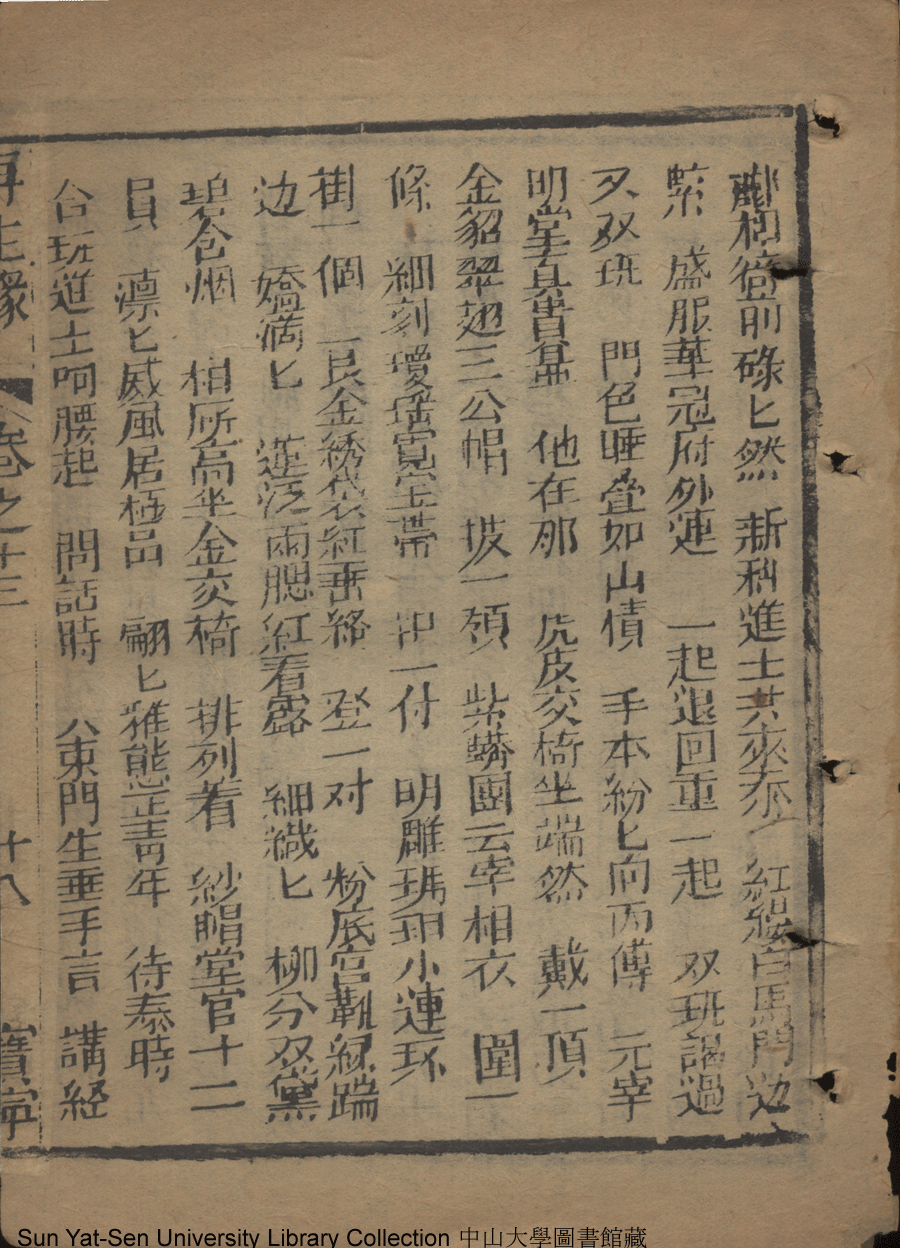 相登前碌匕然 新科進士共來叅 紅纓白馬門边
繁 盛服華冠府外連 一起退回重一起 双班謁過
又双班 門色睡叠如山債 手本紛匕向内傳 元宰
明堂真貴 他在那 虎皮交椅坐端然 戴一頂
金貂翠翅三公帽 披一領 紫蟒團云宰相衣 圍一
條 細刻瓊瑶寛宝帶 一付 明雕瑪瑙小連环
掛一個 艮金綉袋紅垂絡 登一对 粉底官靴緑踹
边 嬌滴匕 蓮泛兩腮紅看露 細織匕 柳分双黛
碧含烟 相所高坐金交椅 排列着 紗帽堂官十二
員 凛匕威風居極品 翩匕雅態正青年 待泰時
合班進士呵腰起 問話時 八東門生垂手言 講経
再生緣 卷之十三 十八 寳寧
Sun Yat-Sen University Library Collection 中山大學圖書館藏